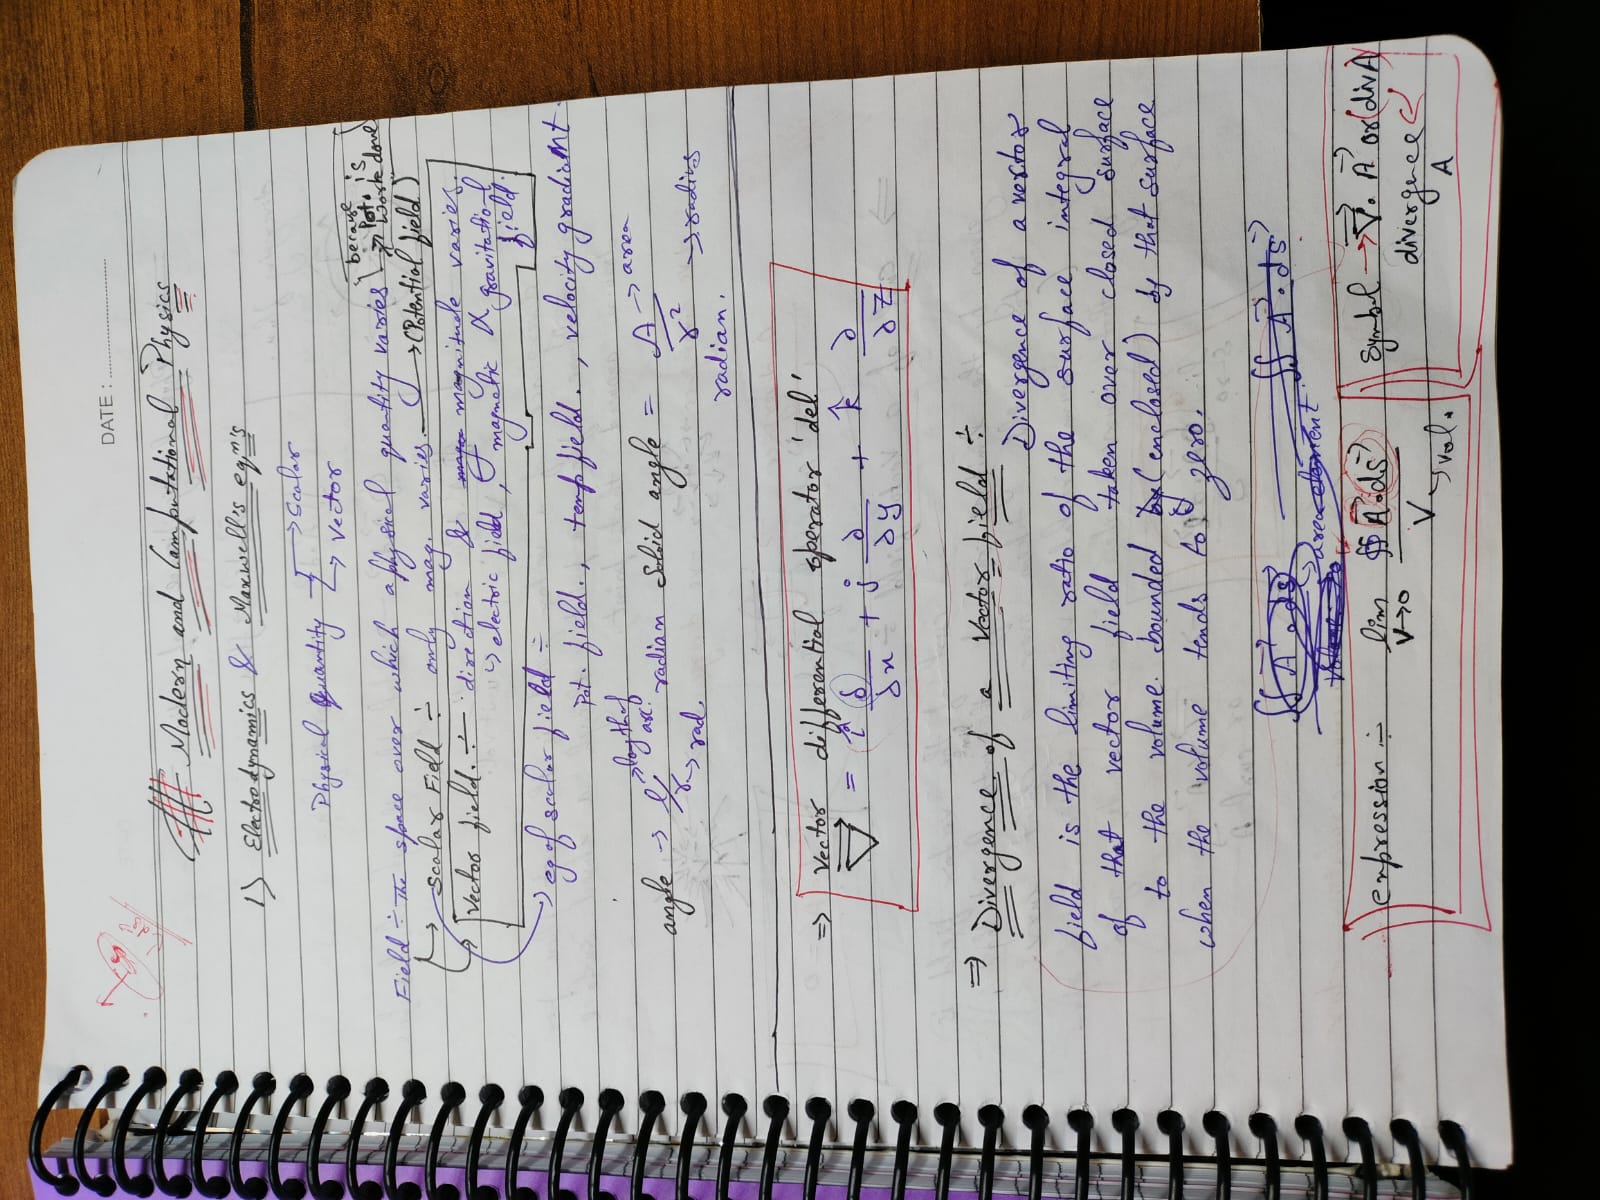 DATE :
Modern and Computational Physics
1) Electrodynamics & Maxwell's eqn's
Physical Quantity → Scalar
→ Vector
Field ÷ The space over which a physical quantity varies
because Pot. is work done
→ Scalar Field ÷ only mag. varies. → (Potential field)
→ Vector field. ÷ direction & magnitude varies.
↳ electric field, magnetic & gravitational field.
→ eg of scalar field ÷
Pot. field., temp field., velocity gradient.
angle → l/r → length of arc. radian Solid angle = A → area / r² → radius
→ rad. radian.
⇒ Vector differential operator 'del'
∇⃗ = î δ/δx + ĵ ∂/∂y + k̂ ∂/∂z
⇒ Divergence of a Vector field ÷
Divergence of a vector
field is the limiting ratio of the surface integral
of that vector field taken over closed surface
to the volume bounded (enclosed) by that surface
when the volume tends to zero.
∬ A⃗ . ds⃗ ∬ A⃗ . ds⃗
area element
expression ÷ lim V→0 ∯ A⃗ . ds⃗ / V → vol.
Symbol → ∇⃗ . A⃗ or (div A)
divergence A